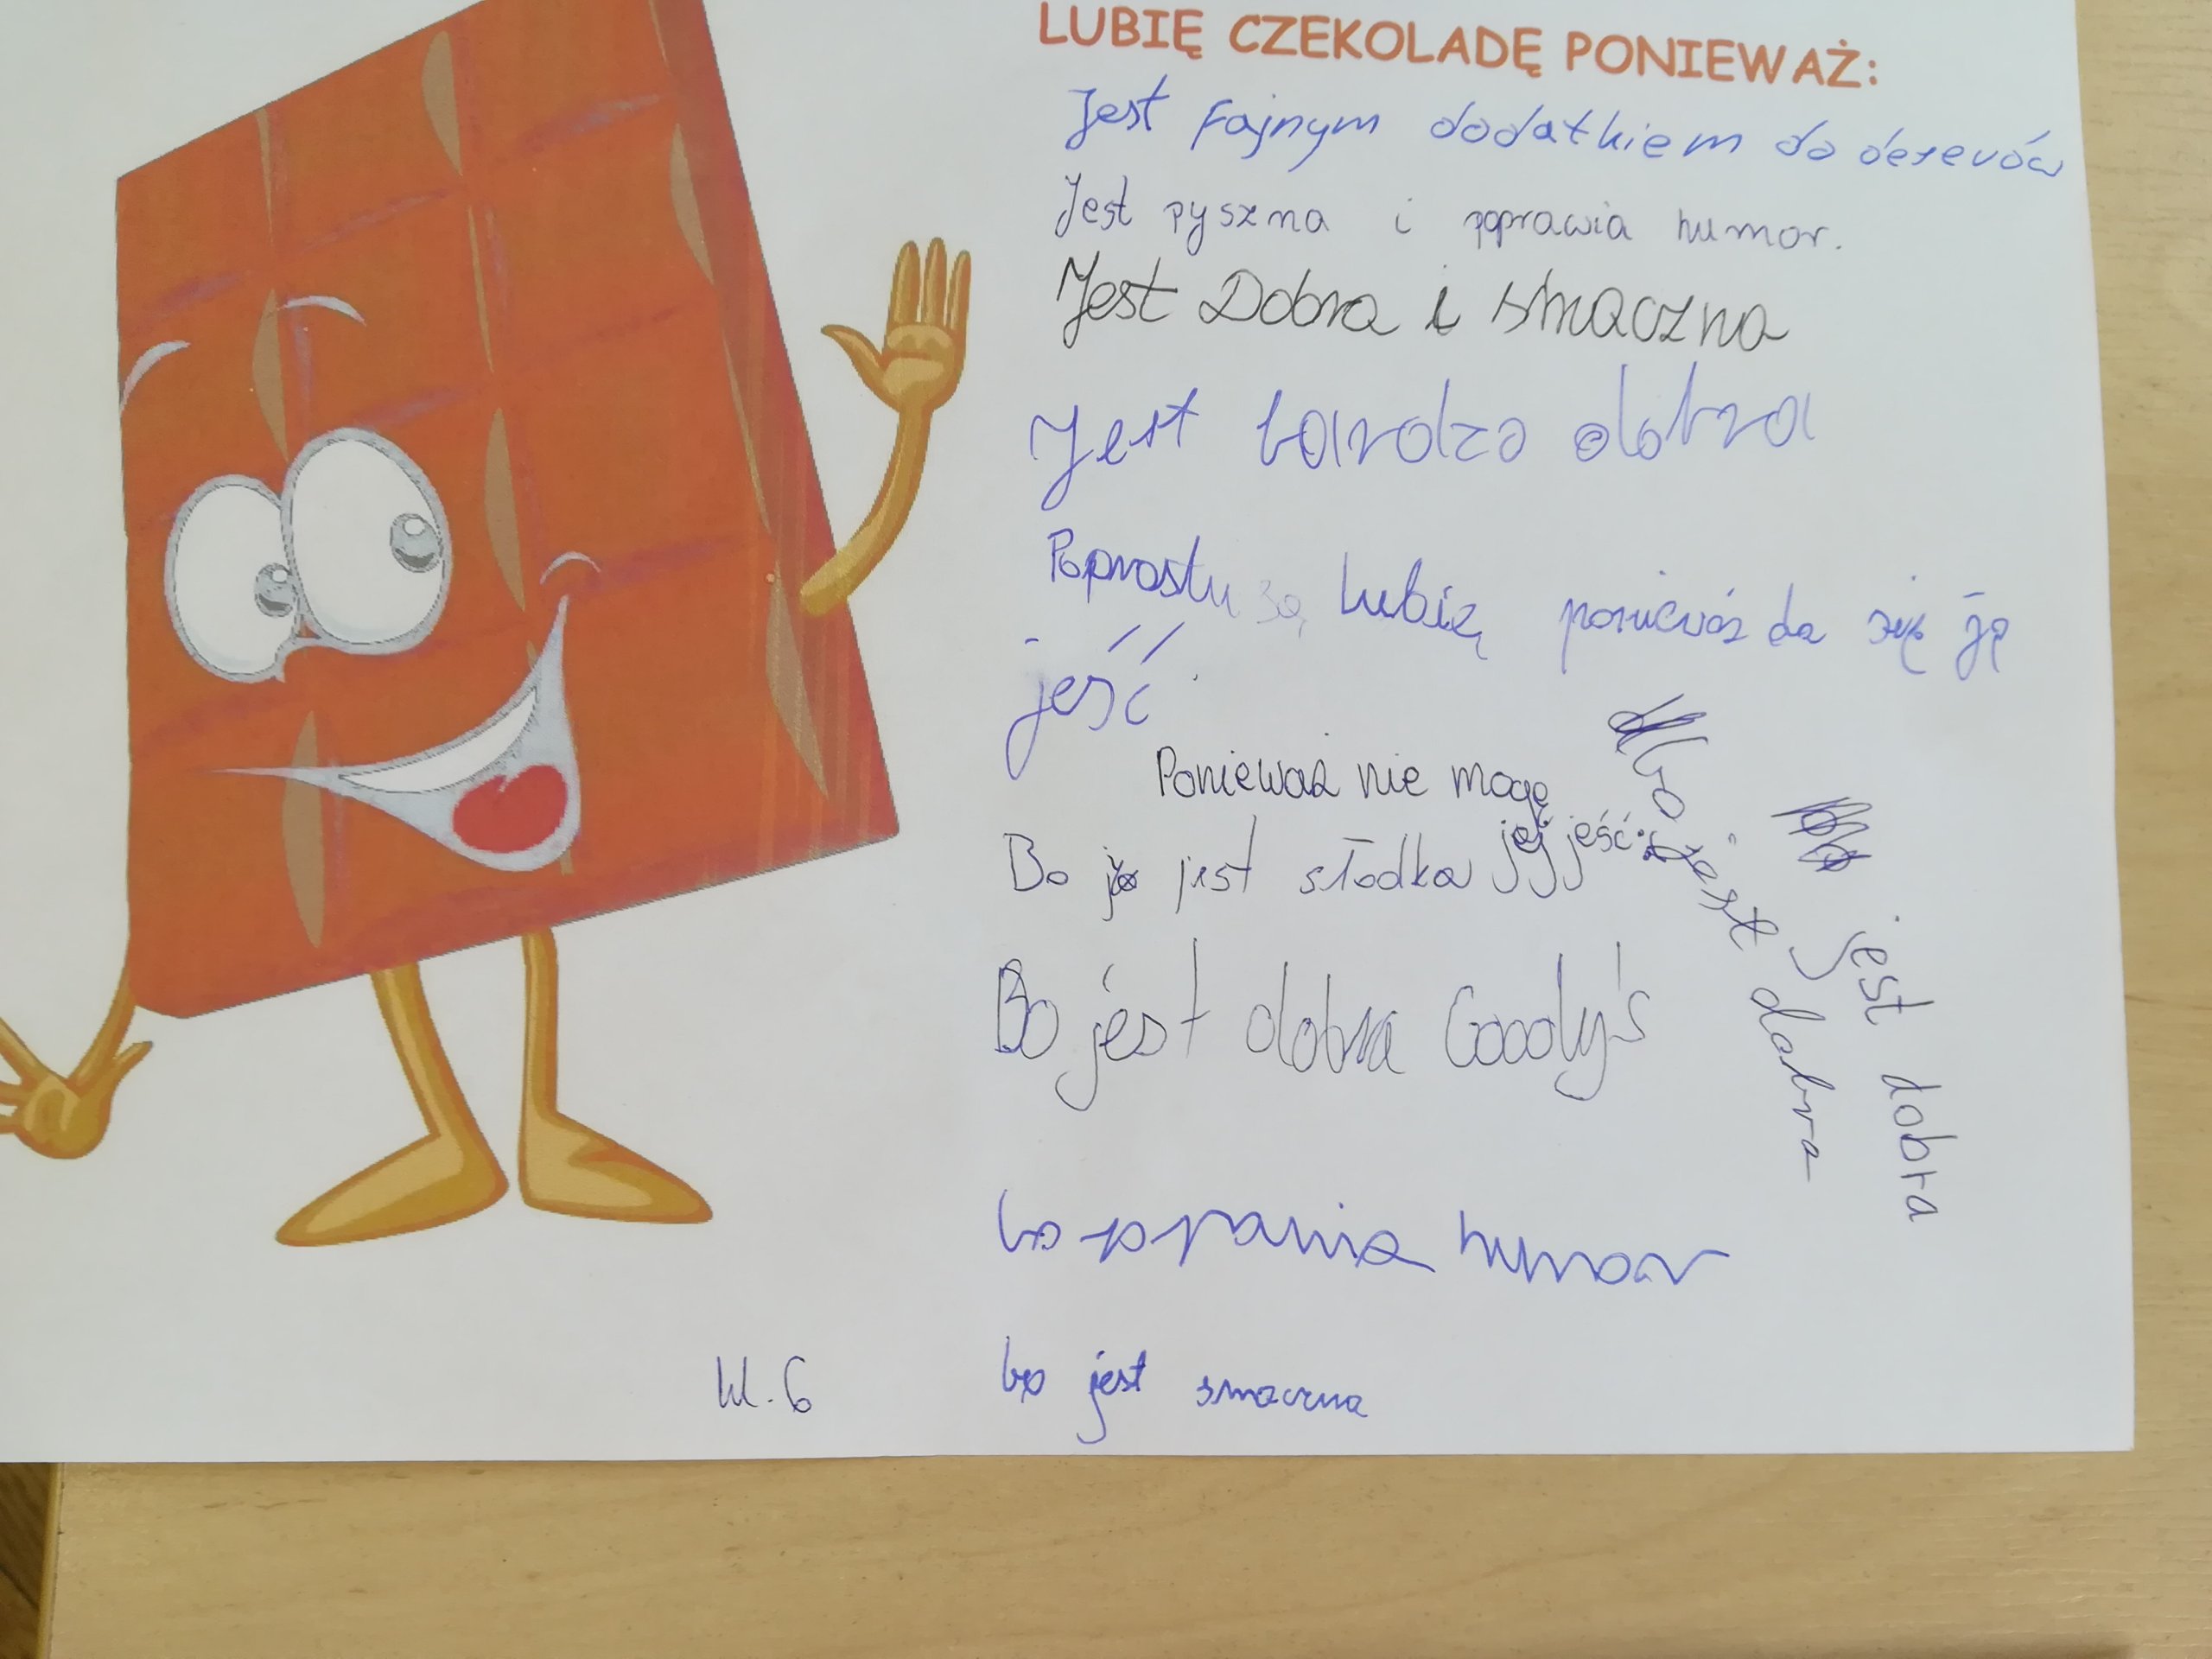 LUBIĘ CZEKOLADĘ PONIEWAŻ:
Jest Fajnym dodatkiem do deserów
Jest pyszna i poprawia humor.
Jest Dobra i smaczna
Jest bardzo dobra
Poprostu ją Lubię ponieważ da się ją
jeść
Ponieważ nie mogę
jej jeść.
Bo jest słodka
bo jest dobra
jest dobra
Bo jest dobra
bo prawia humor
bo jest smaczna
kl. 6